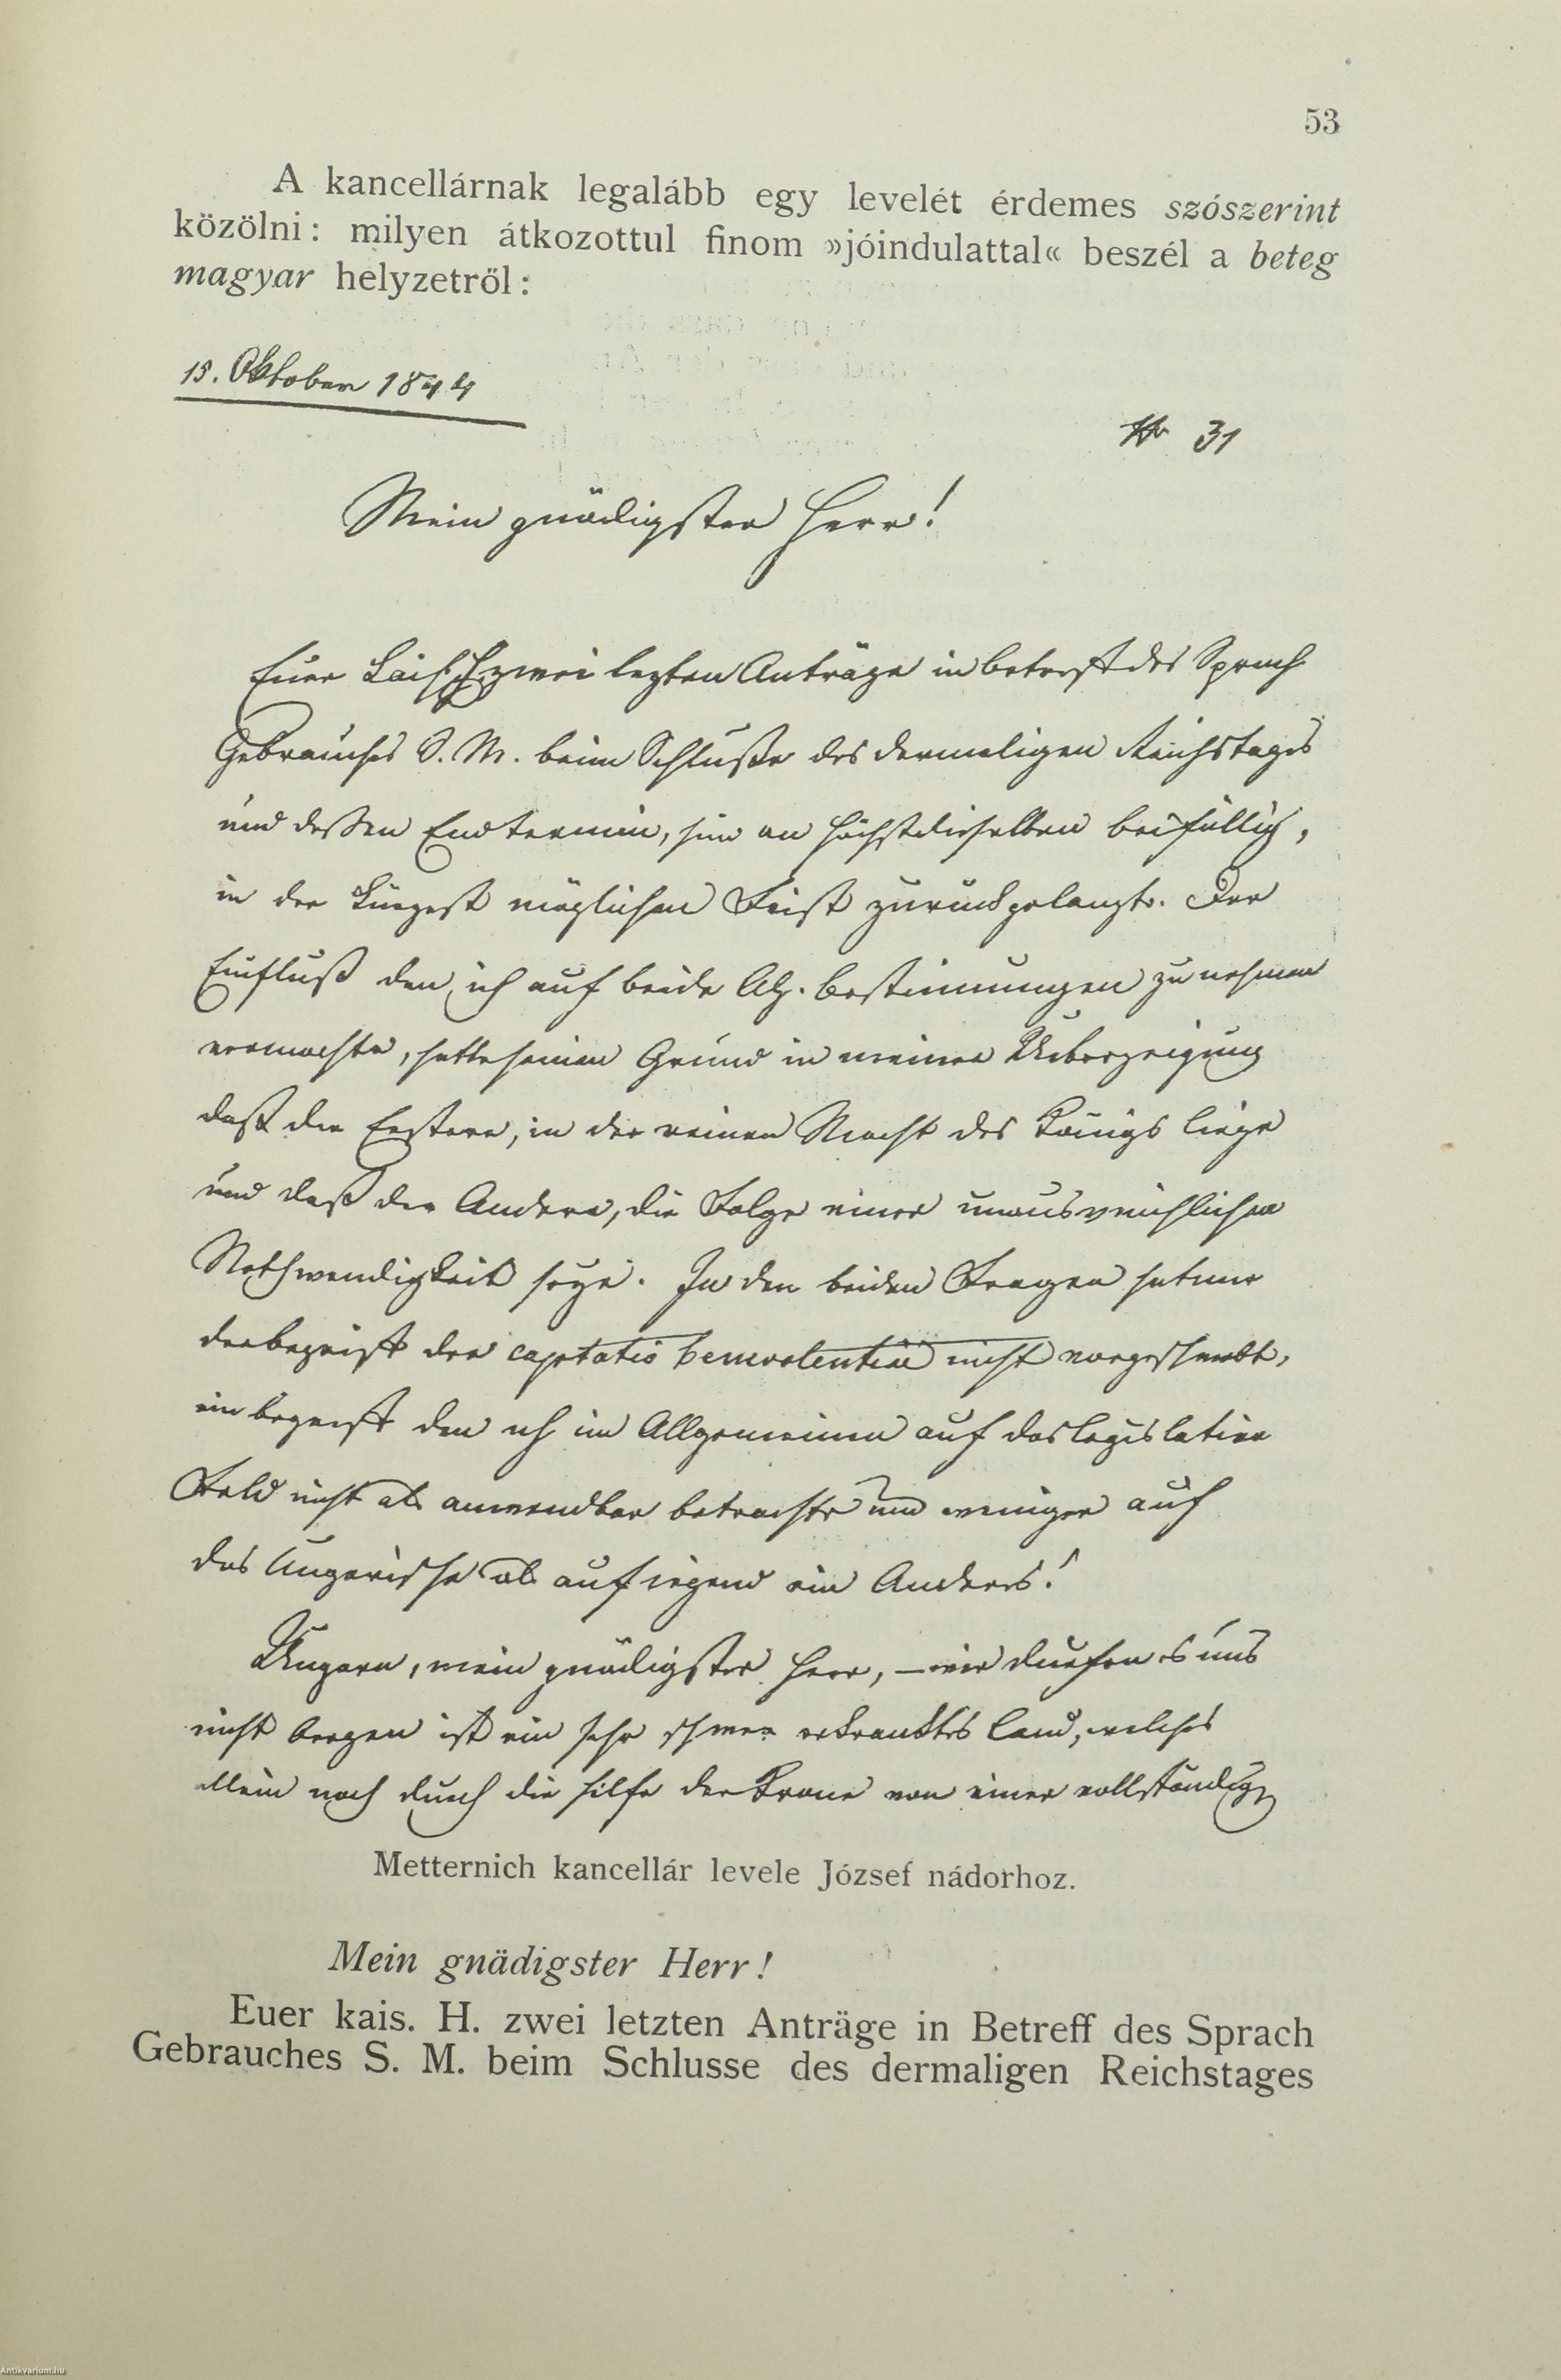 53
A kancellárnak legalább egy levelét érdemes szószerint
közölni: milyen átkozottul finom »jóindulattal« beszél a beteg
magyar helyzetről:
15. Oktober 1844
31
Mein gnädigster Herr!
Euer Kais. H. zwei lezten Anträge in betreff des Sprach
Gebrauches S. M. beim Schluße des dermaligen Reichstages
und deßen Endtermin, sind an Höchstdieselben beifällig,
in der kürzest möglichen Frist zurückgelangt. Der
Einfluß den ich auf beide Ah. bestimmungen zu nehmen
vermochte, hatte seinen Grund in meiner Ueberzeigung
daß der Erstere, in der reinen Macht des Königs liege
und daß der Andere, die Folge einer unausweichlichen
Nothwendigkeit seye. In den beiden Fragen hat mir
der begriff der captatio benevolentiae nicht vorgeschwebt,
ein begriff den ich im Allgemeinen auf das legislative
Feld nicht als anwendbar betrachte und weniger auf
das Ungarische als auf irgend ein Anderes!
Ungarn, mein gnädigster Herr, — wir durfen es uns
nicht bergen ist ein sehr schwer erkranktes Land, welches
allein noch durch die Hilfe der Krone von einer vollständig
Metternich kancellár levele József nádorhoz.
Mein gnädigster Herr!
Euer kais. H. zwei letzten Anträge in Betreff des Sprach
Gebrauches S. M. beim Schlusse des dermaligen Reichstages
Antikvarium.hu